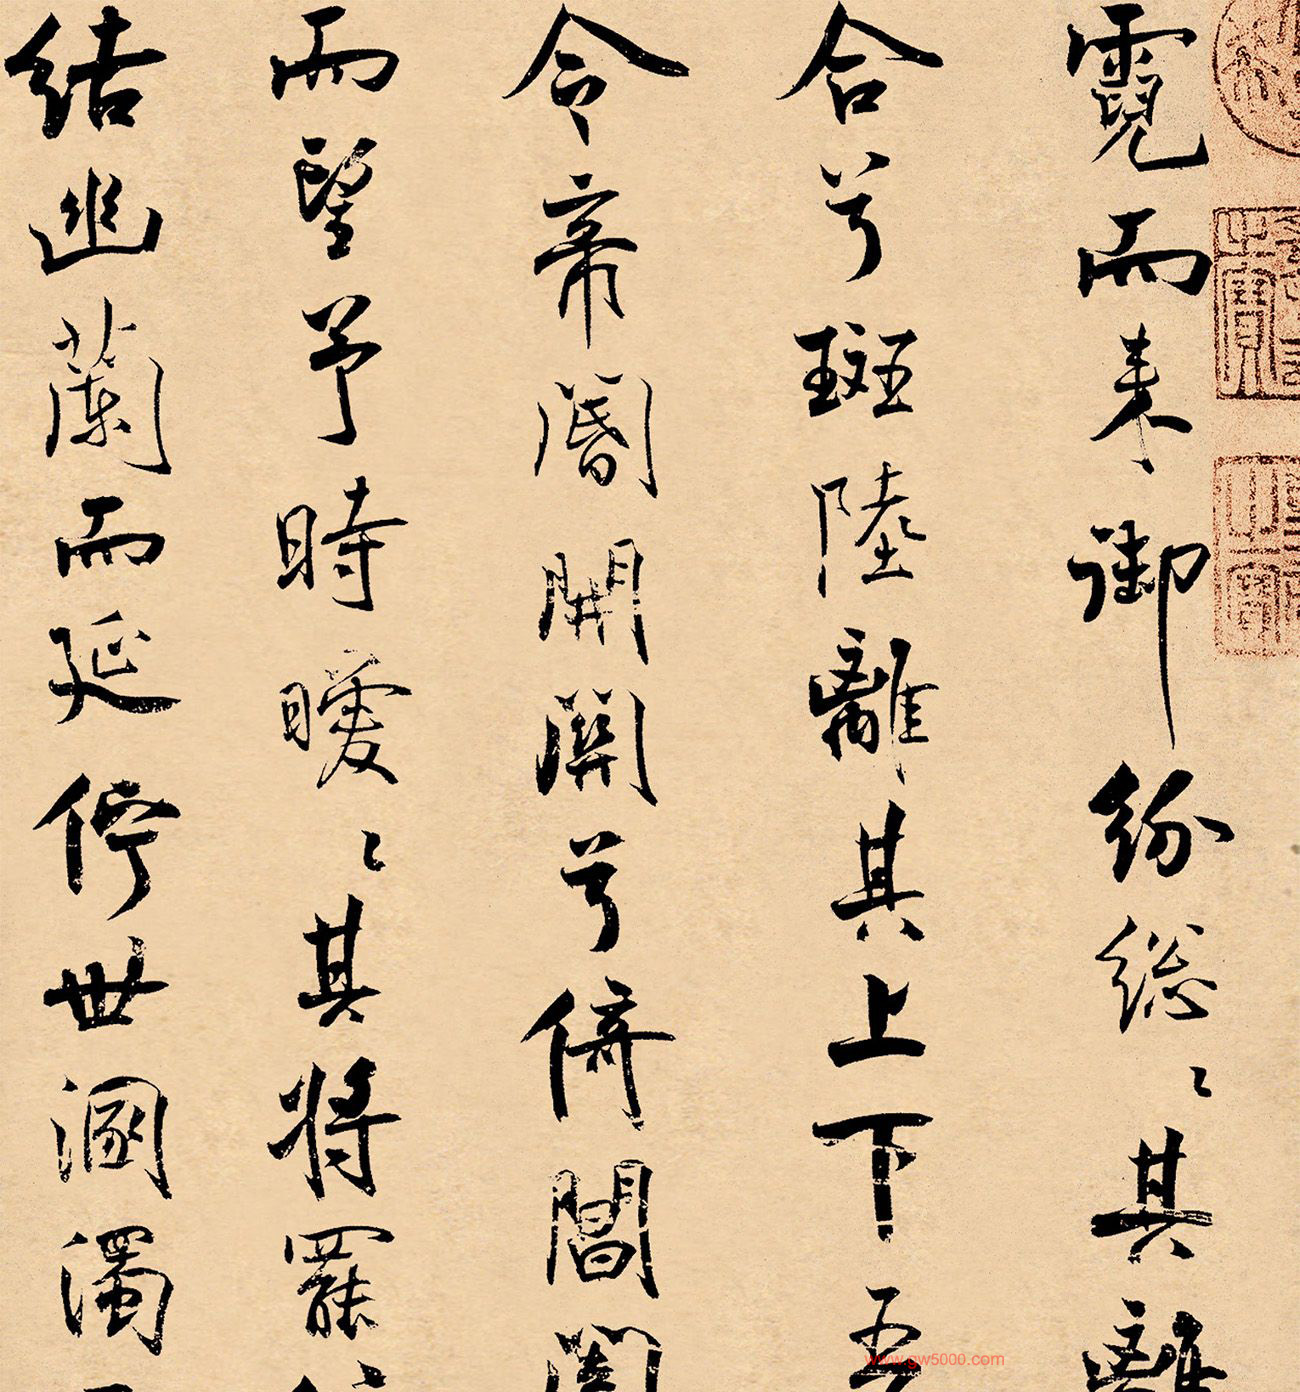 霓而来御紛総〻其離
合兮斑陸離其上下吾
令帝閽開關兮倚閶闔
而望予時曖〻其将罷
結幽蘭而延佇世溷濁
www.gw5000.com